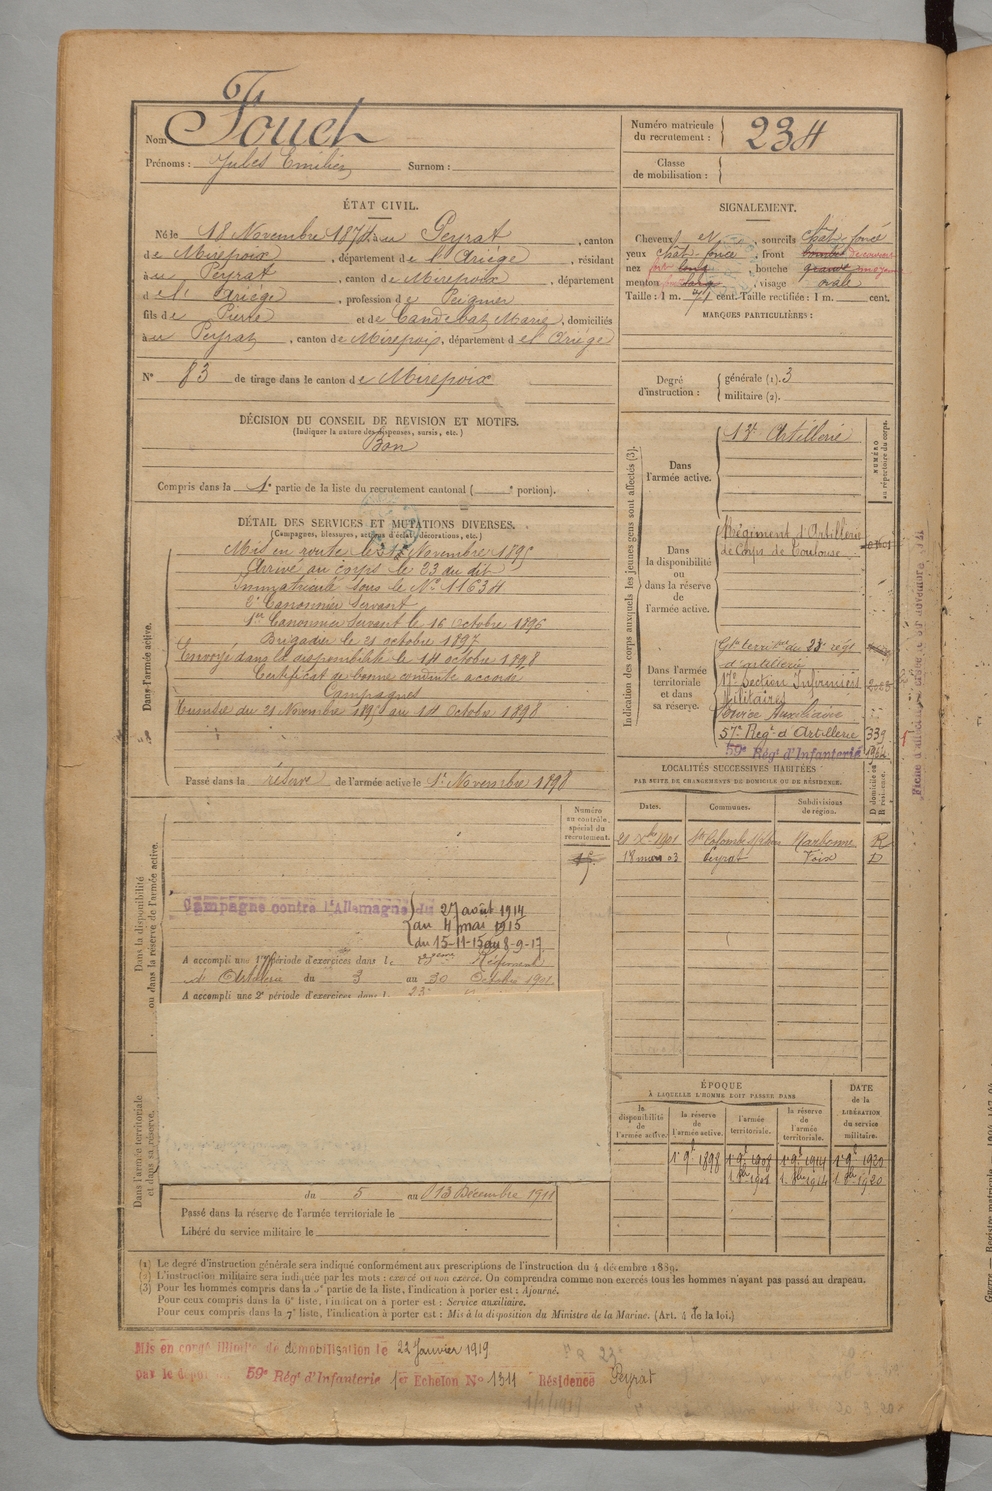 Nom Fouch
Prénoms : Jules Emilien Surnom :
Numéro matricule du recrutement : 234
Classe de mobilisation :
ÉTAT CIVIL.
Né le 18 Novembre 1874, à Peyrat, canton
de Mirepoix, département de l'Ariège, résidant
à Peyrat, canton de Mirepoix, département
d l'Ariège, profession de Peigneur
fils de Pierre et de Candebat Marie, domiciliés
à Peyrat, canton de Mirepoix, département de l'Ariège
N° 83 de tirage dans le canton de Mirepoix
DÉCISION DU CONSEIL DE REVISION ET MOTIFS.
(Indiquer la nature des dispenses, sursis, etc.)
Bon
Compris dans la 1e partie de la liste du recrutement cantonal ( e portion).
DÉTAIL DES SERVICES ET MUTATIONS DIVERSES.
(Campagnes, blessures, actions d'éclat, décorations, etc.)
Dans l'armée active.
Mis en route le Novembre 1895
Arrivé au corps le 23 du dit
Immatriculé sous le N° 11634
2e Canonnier Servant
1er Canonnier Servant le 16 Octobre 1896
Brigadier le 21 octobre 1897
Envoyé dans la disponibilité le 14 octobre 1898
Certificat de bonne conduite accordé
Campagnes
du 21 Novembre 1895 au 14 Octobre 1898
Passé dans la réserve de l'armée active le 1er Novembre 1898
Dans la disponibilité ou dans la réserve de l'armée active.
Numéro au contrôle spécial du recrutement.
Campagne contre l'Allemagne du 27 août 1914
au 4 mai 1915
du 15-11-15 au 8-9-17
A accompli une 1re période d'exercices dans le 23ème Régiment
d'Artillerie du 3 au 30 Octobre 1901
A accompli une 2e période d'exercices dans l 23e
Dans l'armée territoriale et dans sa réserve.
du 5 au 13 Décembre 1911
Passé dans la réserve de l'armée territoriale le
Libéré du service militaire le
SIGNALEMENT.
Cheveux , sourcils chât. foncé
yeux chât. foncé, front
nez long, bouche grande moyenne
menton large, visage ovale
Taille : 1 m. 71 cent. Taille rectifiée : 1 m. cent.
MARQUES PARTICULIÈRES :
Degré d'instruction : générale (1). 3
militaire (2).
Indication des corps auxquels les jeunes gens sont affectés (3).
NUMÉRO au répertoire du corps.
Dans l'armée active.
Artillerie
Dans la disponibilité ou dans la réserve de l'armée active.
Régiment d'Artillerie
de Corps de Toulouse
Dans l'armée territoriale et dans sa réserve.
Gpe territal du 23e régt
d'artillerie
17e Section Infirmiers
Militaires
Service Auxiliaire
57e Regt d'Artillerie 339
59e Régt d'Infanterie
LOCALITÉS SUCCESSIVES HABITÉES
PAR SUITE DE CHANGEMENTS DE DOMICILE OU DE RÉSIDENCE.
Dates. Communes. Subdivisions de région. D domicile ou R résidence.
20 Xbre 1901 Ste Colombe s/l'Hers Narbonne R
18 mars 03 Peyrat Foix D
ÉPOQUE
À LAQUELLE L'HOMME DOIT PASSER DANS
la disponibilité de l'armée active.
la réserve de l'armée active.
l'armée territoriale.
la réserve de l'armée territoriale.
DATE de la LIBÉRATION du service militaire.
1er 9bre 1898 1er 9bre 1908 1er 9bre 1914 1er 9bre 1920
(1) Le degré d'instruction générale sera indiqué conformément aux prescriptions de l'instruction du 4 décembre 1889.
(2) L'instruction militaire sera indiquée par les mots : exercé ou non exercé. On comprendra comme non exercés tous les hommes n'ayant pas passé au drapeau.
(3) Pour les hommes compris dans la 5e partie de la liste, l'indication à porter est : Ajourné.
Pour ceux compris dans la 6e liste, l'indication à porter est : Service auxiliaire.
Pour ceux compris dans la 7e liste, l'indication à porter est : Mis à la disposition du Ministre de la Marine. (Art. 4 de la loi.)
Mis en congé illimité de démobilisation le 22 Janvier 1919
par le dépôt 59e Régt d'Infanterie 1er Echelon N° 1311 Résidence Peyrat